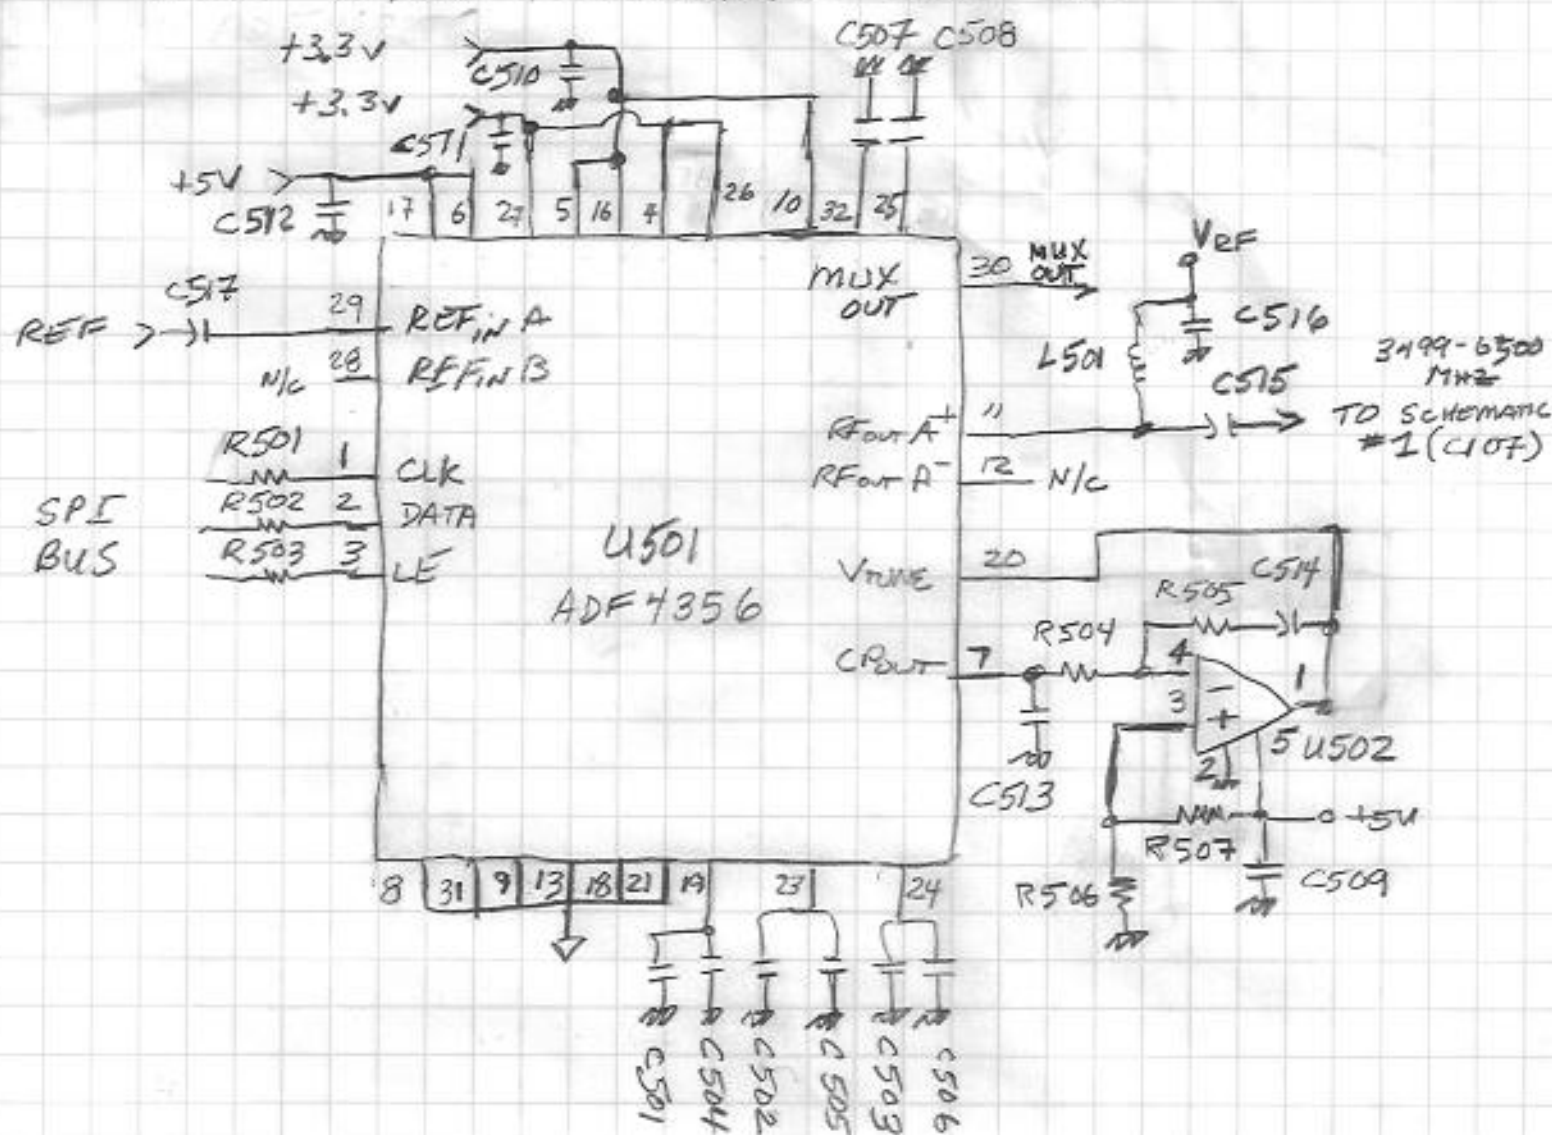 +3.3V
C510
C507 C508
+3.3V
C511
+5V
C512
17 6 27 5 16 4 26 10 32 25
C517
REF
29 REFIN A
N/C 28 REFIN B
R501 1 CLK
SPI BUS
R502 2 DATA
R503 3 LE
U501
ADF4356
MUX OUT
30 MUX OUT
VRF
C516
L501
C515
3499-6500
MHZ
TO SCHEMATIC
#1 (C107)
RFOUT A+ 11
RFOUT A- 12 N/C
VTUNE 20
C514
R505
R504
CPOUT 7
4
3
1
- +
5 U502
2
C513
+5V
R507
R506
C509
8 31 9 13 18 21 19 23 24
C501
C504
C502
C505
C503
C506